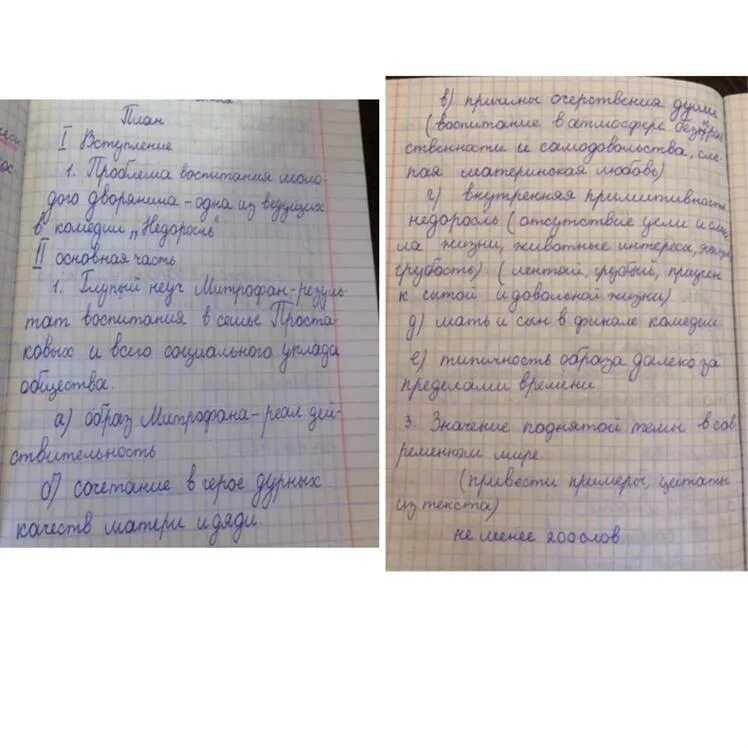 План
I Вступление
1. Проблема воспитания моло-
дого дворянина - одна из ведущих
в комедии „Недоросль"
II основная часть
1. Глупый неуч Митрофан - резуль-
тат воспитания в семье Проста-
ковых и всего социального уклада
общества.
а) образ Митрофана - реал. дей-
ствительность
б) сочетание в герое дурных
качеств матери и дяди.
в) причины очерствения души
(воспитание в атмосфере безнрав-
ственности и самодовольства, сле-
пая материнская любовь)
г) внутренняя примитивность
недоросль (отсутствие цели и
ла жизни, животные интереса,
грубость) (лентяй, грубый, приучен
к сытой и довольной жизни)
д) мать и сын в финале комедии.
е) типичность образа далеко за
пределами времени.
3. Значение поднятой темы в сов
ременном мире.
(привести примеры, цитаты
из текста)
не менее 200 слов